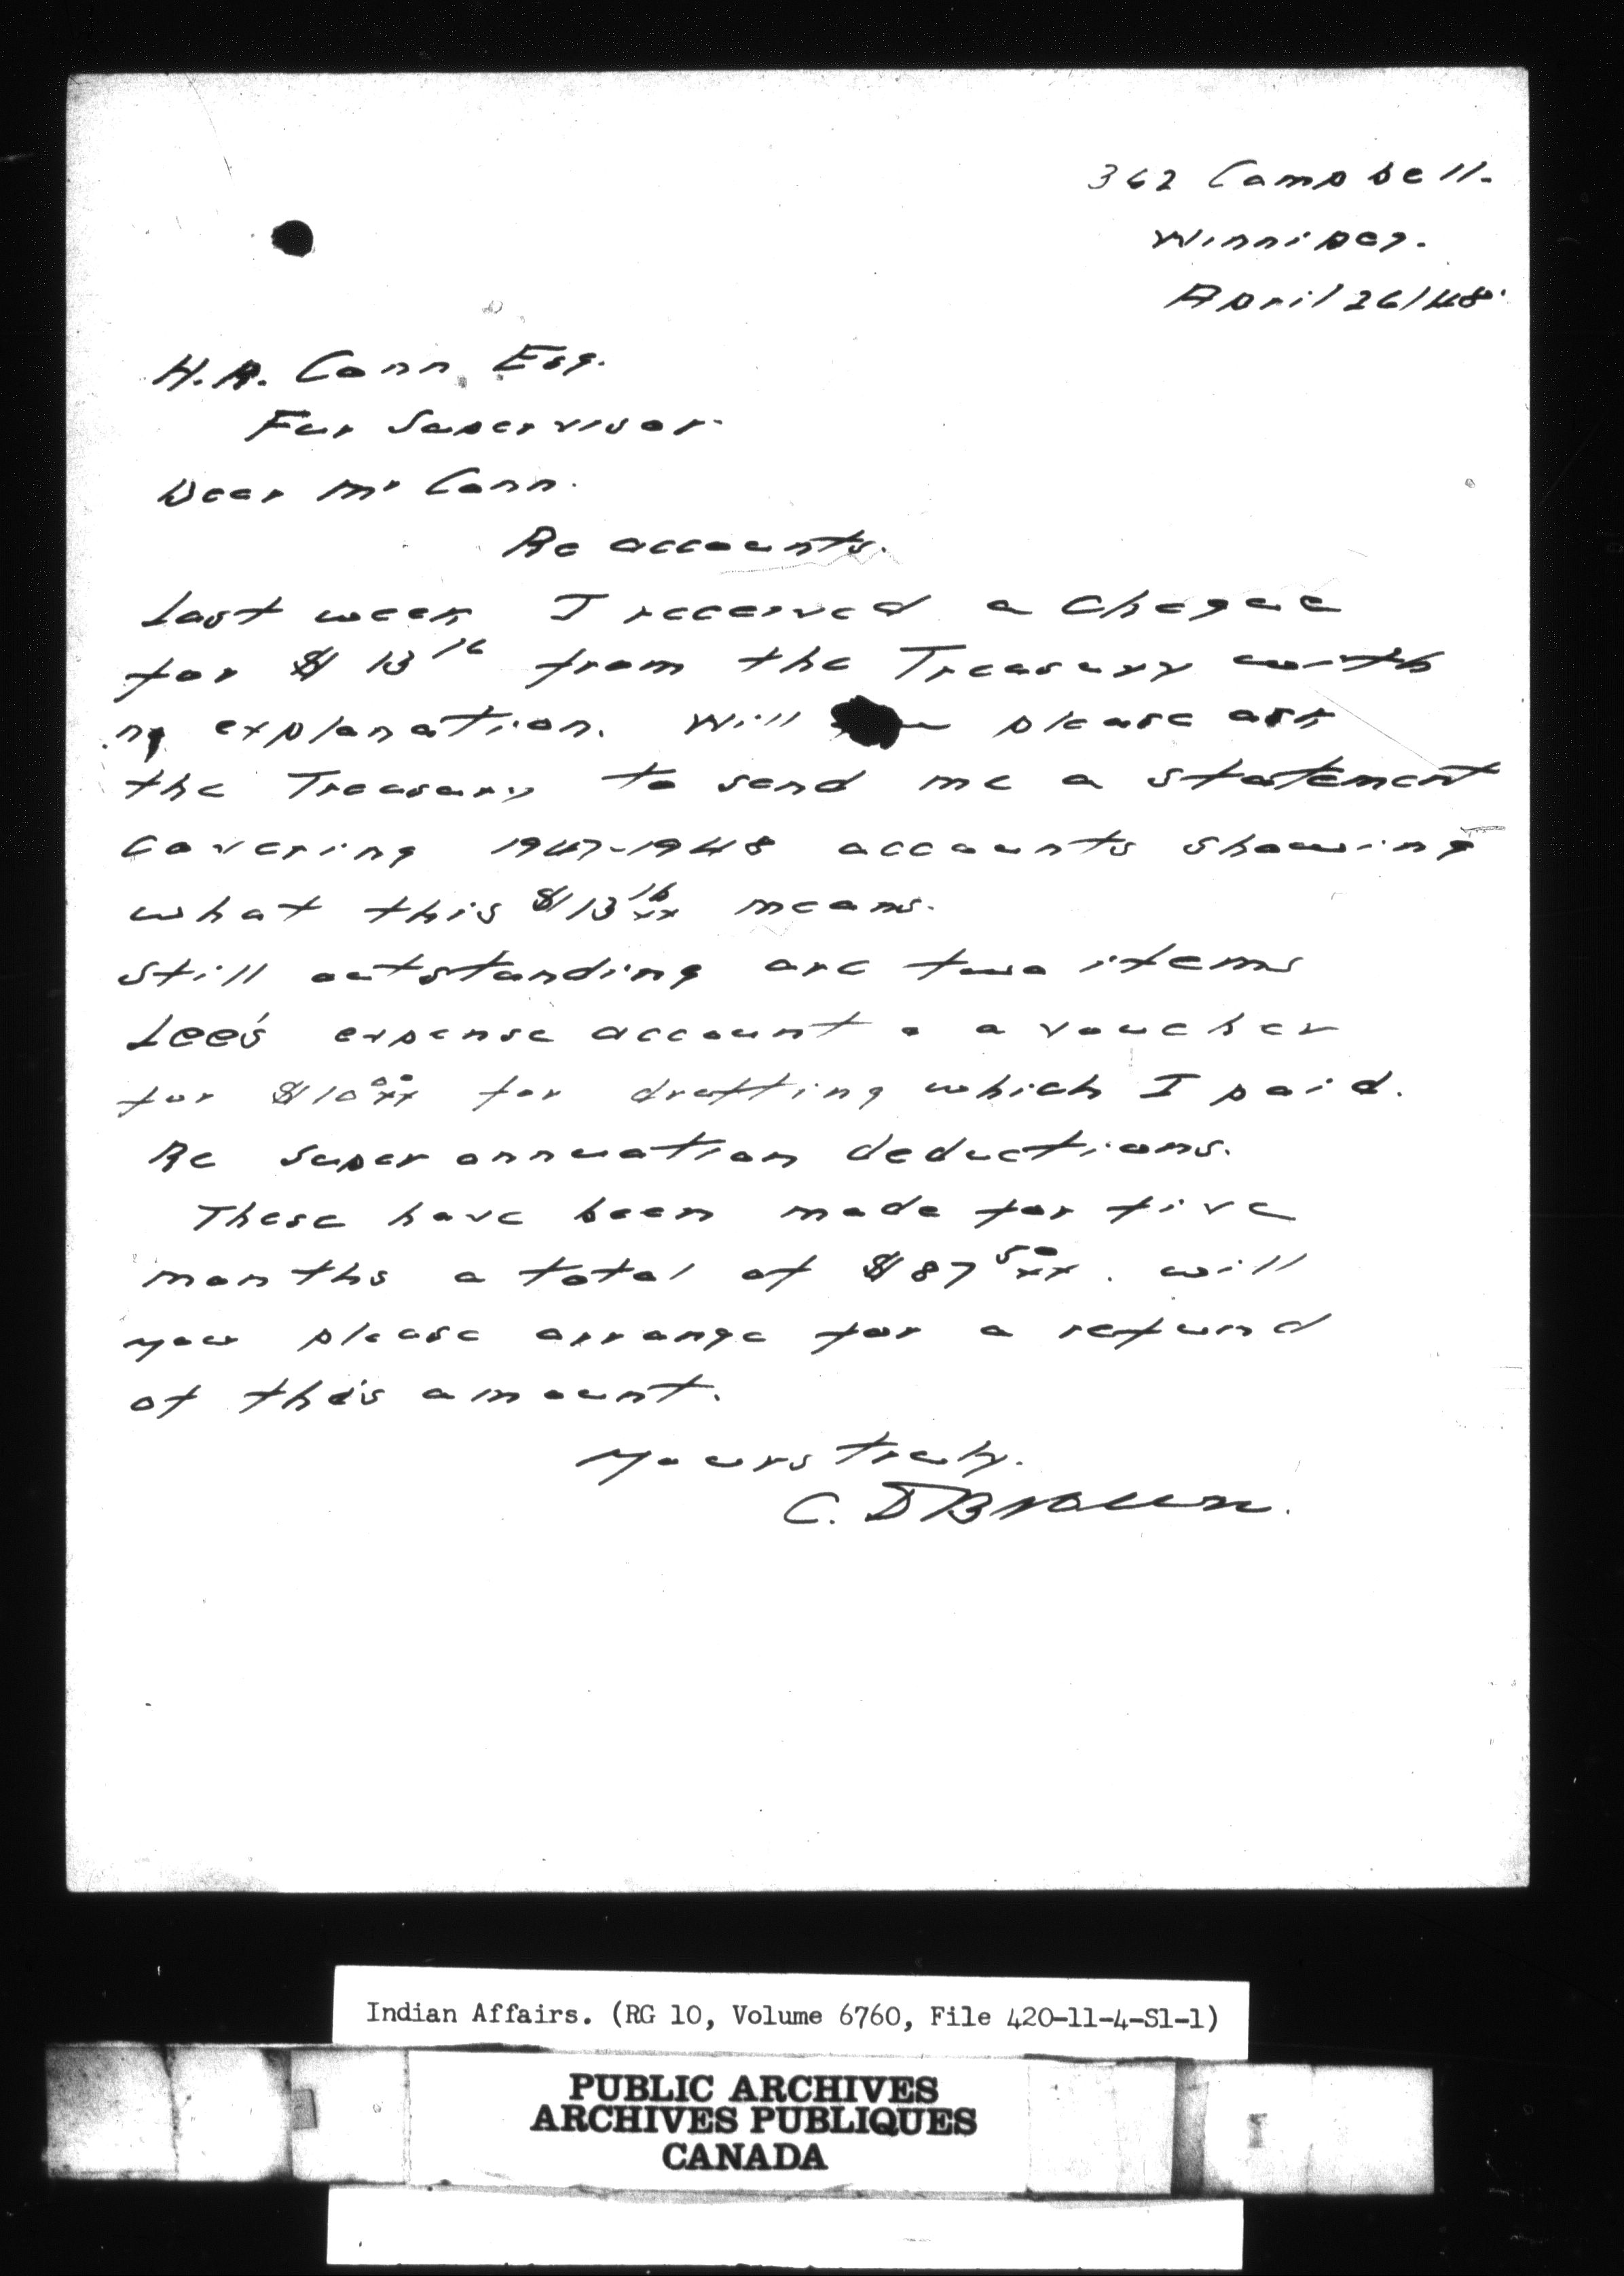 362 Campbell.
Winnipeg.
April 26/48.
H.R. Conn Esq.
Fur Supervisor.
Dear Mr Conn.
Re accounts.
Last week I received a cheque
for $13 16 from the Treasury with
no explanation. Will please ask
the Treasury to send me a statement
covering 1947-1948 accounts showing
what this $13 16/xx means.
Still outstanding are two items
Lee's expense account & a voucher
for $10 00/xx for drafting which I paid.
Re superannuation deductions.
These have been made for five
months a total of $87 50/xx. will
you please arrange for a refund
of this amount.
Yours truly.
C. D Brown.
Indian Affairs. (RG 10, Volume 6760, File 420-11-4-S1-1)
PUBLIC ARCHIVES
ARCHIVES PUBLIQUES
CANADA